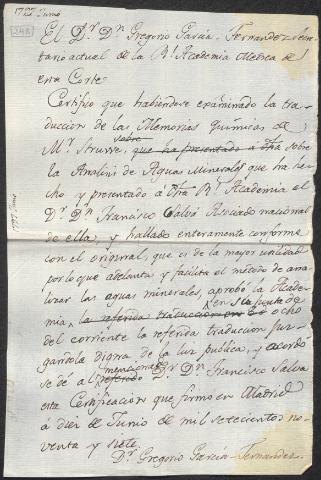 1797 Junio
248
El Dr. Dn. Gregorio Garcia Fernandez secre-
tario actual de la Rl. Academia Medica de
esta Corte
Certifico que habiendose examinado la tra-
duccion de las Memorias Quimicas de
Mr. Struve, sobre que ha presentado a dha sobre
la Analisis de Aguas Minerales que ha he-
cho y presentado à dha Rl. Academia el
Dr. Dn. Francisco Salvá Asociado nacional
de ella, y hallado enteramente conforme
con el original, que es de la mayor utilidad
por lo que adelanta y facilita el método de ana-
lizar las aguas minerales, aprobó la Acade-
mia, la referida traduccion en su junta de ocho
del corriente la referida traduccion juz-
gandola digna de la luz publica, y acordó
se dé al referido mencionado Dr. Dn. Francisco Salva
esta Certificacion que firmo en Madrid
à diez de Junio de mil setecientos no-
venta y siete.
Dr. Gregorio Garcia Fernandez.
1797 Junio